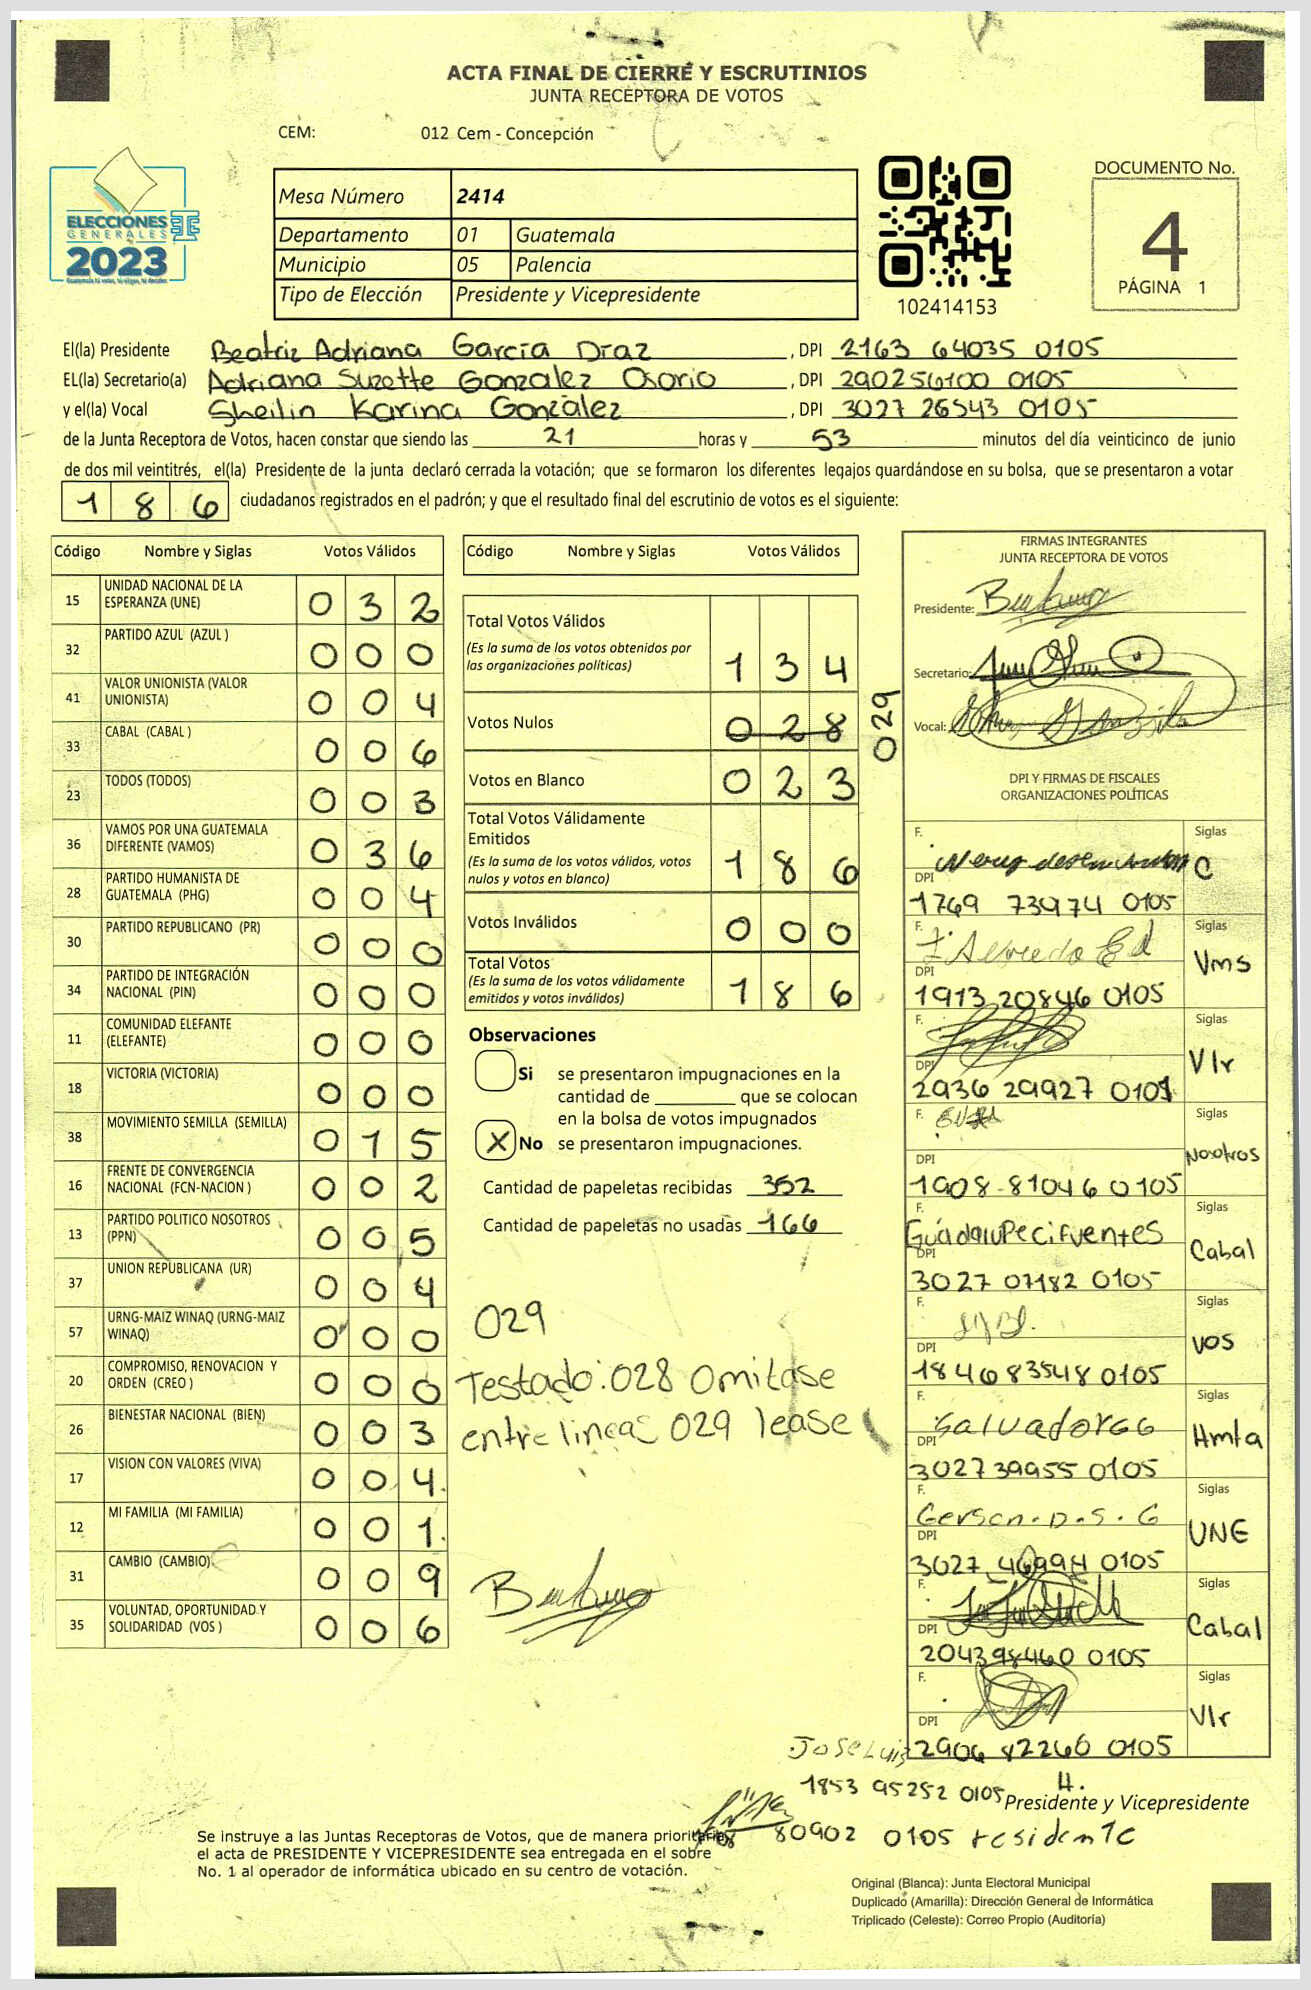 ACTA FINAL DE CIERRE Y ESCRUTINIOS
JUNTA RECEPTORA DE VOTOS
CEM: 012 Cem - Concepción
ELECCIONES
GENERALES
2023
Mesa Número 2414
Departamento 01 Guatemala
Municipio 05 Palencia
Tipo de Elección Presidente y Vicepresidente
102414153
DOCUMENTO No.
4
PÁGINA 1
El(la) Presidente Beatriz Adriana García Díaz, DPI 2163 64035 0105
EL(la) Secretario(a) Adriana Suzette Gonzalez Osorio, DPI 290256100 0105
y el(la) Vocal Sheilin Karina González, DPI 3027 26543 0105
de la Junta Receptora de Votos, hacen constar que siendo las 21 horas y 53 minutos del día veinticinco de junio
de dos mil veintitrés, el(la) Presidente de la junta declaró cerrada la votación; que se formaron los diferentes legajos guardándose en su bolsa, que se presentaron a votar
186 ciudadanos registrados en el padrón; y que el resultado final del escrutinio de votos es el siguiente:
Código Nombre y Siglas Votos Válidos
15 UNIDAD NACIONAL DE LA ESPERANZA (UNE) 0 3 2
32 PARTIDO AZUL (AZUL ) 0 0 0
41 VALOR UNIONISTA (VALOR UNIONISTA) 0 0 4
33 CABAL (CABAL ) 0 0 6
23 TODOS (TODOS) 0 0 3
36 VAMOS POR UNA GUATEMALA DIFERENTE (VAMOS) 0 3 6
28 PARTIDO HUMANISTA DE GUATEMALA (PHG) 0 0 4
30 PARTIDO REPUBLICANO (PR) 0 0 0
34 PARTIDO DE INTEGRACIÓN NACIONAL (PIN) 0 0 0
11 COMUNIDAD ELEFANTE (ELEFANTE) 0 0 0
18 VICTORIA (VICTORIA) 0 0 0
38 MOVIMIENTO SEMILLA (SEMILLA) 0 1 5
16 FRENTE DE CONVERGENCIA NACIONAL (FCN-NACION ) 0 0 2
13 PARTIDO POLITICO NOSOTROS (PPN) 0 0 5
37 UNION REPUBLICANA (UR) 0 0 4
57 URNG-MAIZ WINAQ (URNG-MAIZ WINAQ) 0 0 0
20 COMPROMISO, RENOVACION Y ORDEN (CREO ) 0 0 0
26 BIENESTAR NACIONAL (BIEN) 0 0 3
17 VISION CON VALORES (VIVA) 0 0 4
12 MI FAMILIA (MI FAMILIA) 0 0 1
31 CAMBIO (CAMBIO) 0 0 9
35 VOLUNTAD, OPORTUNIDAD Y SOLIDARIDAD (VOS ) 0 0 6
Código Nombre y Siglas Votos Válidos
Total Votos Válidos
(Es la suma de los votos obtenidos por
las organizaciones políticas) 1 3 4
Votos Nulos 0 2 8 029
Votos en Blanco 0 2 3
Total Votos Válidamente
Emitidos
(Es la suma de los votos válidos, votos
nulos y votos en blanco) 1 8 6
Votos Inválidos 0 0 0
Total Votos
(Es la suma de los votos válidamente
emitidos y votos inválidos) 1 8 6
Observaciones
Si se presentaron impugnaciones en la
cantidad de ________ que se colocan
en la bolsa de votos impugnados
X No se presentaron impugnaciones.
Cantidad de papeletas recibidas 352
Cantidad de papeletas no usadas 166
029
Testado: 028 Omitase
entre lineas 029 lease
FIRMAS INTEGRANTES
JUNTA RECEPTORA DE VOTOS
Presidente:
Secretario:
Vocal:
DPI Y FIRMAS DE FISCALES
ORGANIZACIONES POLÍTICAS
F. Siglas C
DPI 1769 73974 0105
F. Siglas Vms
DPI 1913 20846 0105
F. Siglas Vlr
DPI 2936 29927 0101
F. Siglas Nosotros
DPI 1908-81046 0105
F. Guadalupe Cifuentes Siglas Cabal
DPI 3027 07182 0105
F. Siglas VOS
DPI 1846 83548 0105
F. Salvador GG Siglas Hmta
DPI 302739955 0105
F. Gerson. D. S. G Siglas UNE
DPI 3027 46994 0105
F. Siglas Cabal
DPI 204398460 0105
F. Siglas Vlr
DPI 2906 82260 0105
Jose Luis
1853 95252 0105
Presidente y Vicepresidente
80902 0105 residente
Se instruye a las Juntas Receptoras de Votos, que de manera prioritaria,
el acta de PRESIDENTE Y VICEPRESIDENTE sea entregada en el sobre
No. 1 al operador de informática ubicado en su centro de votación.
Original (Blanca): Junta Electoral Municipal
Duplicado (Amarilla): Dirección General de Informática
Triplicado (Celeste): Correo Propio (Auditoría)